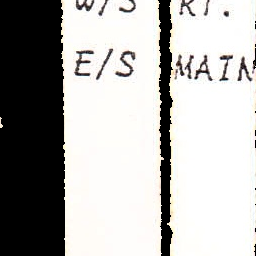 W/S RT.
E/S MAIN